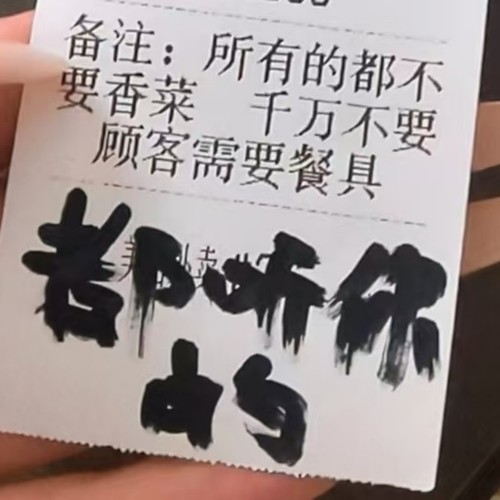 备注：所有的都不
要香菜 千万不要
顾客需要餐具
都听你
的